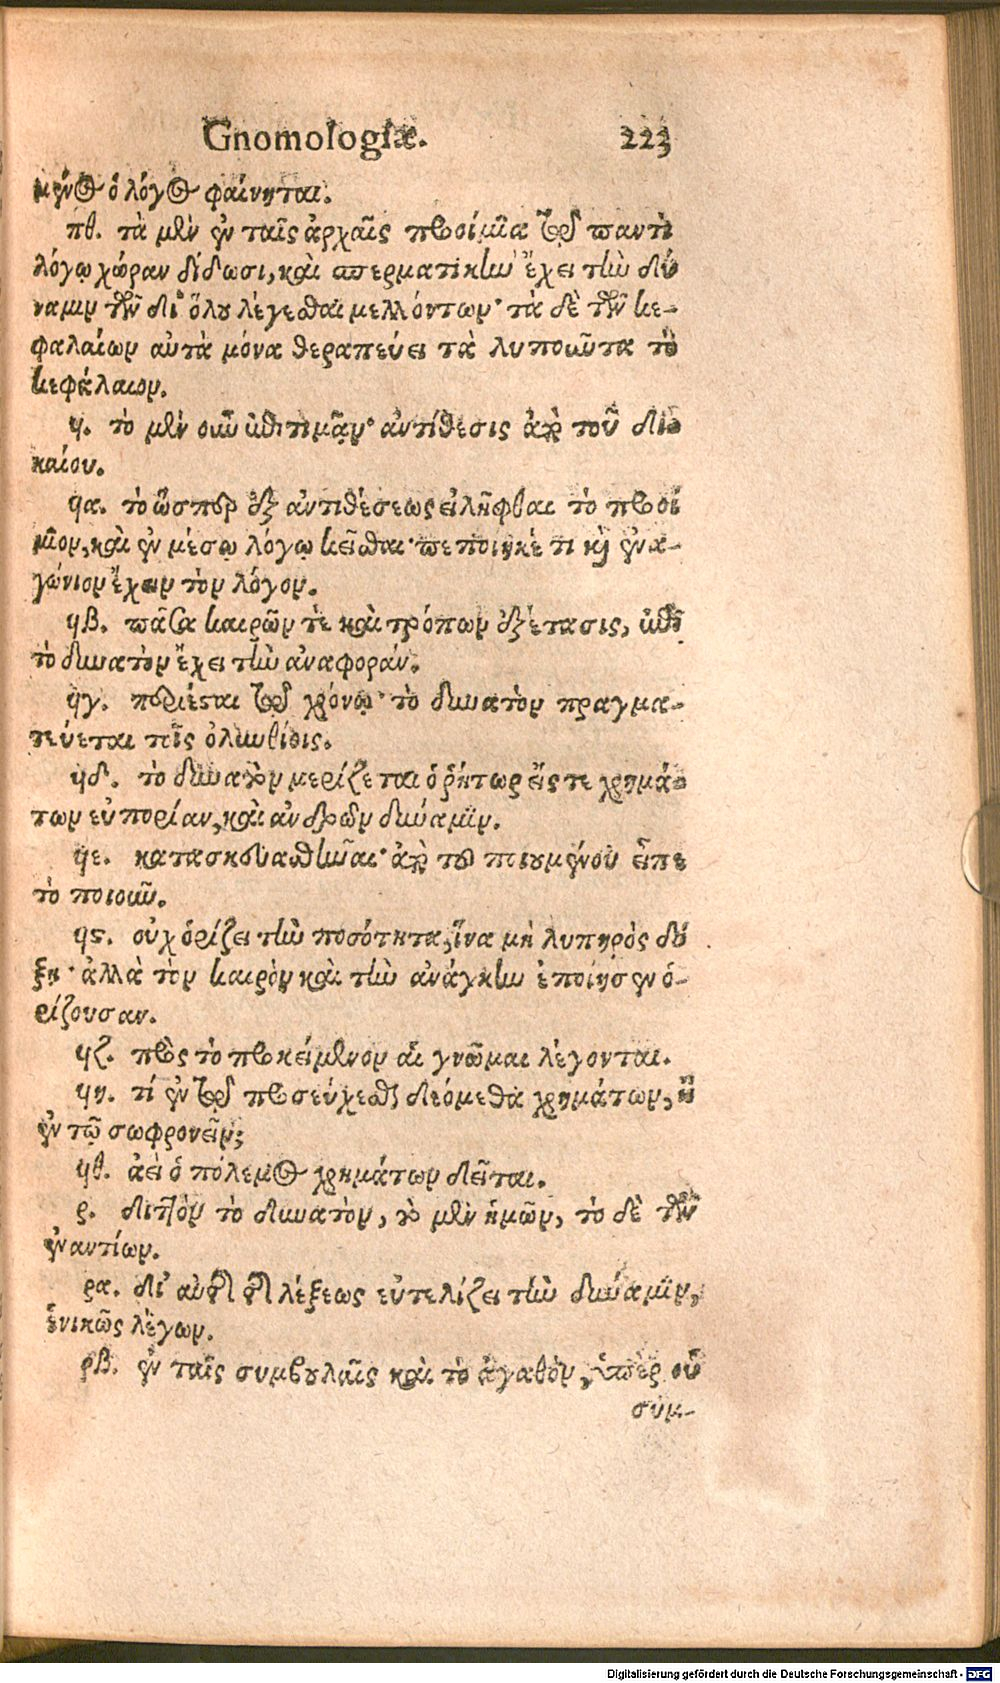 Gnomologiæ. 223
μενος ὁ λόγος φαίνηται.
πθ. τὰ μὲν ἐν ταῖς ἀρχαῖς προοίμια τῷ παντὶ
λόγῳ χώραν δίδωσι, καὶ σπερματικὴν ἔχει τὴν δύ
ναμιν τῶν δι' ὅλου λέγεσθαι μελλόντων· τὰ δὲ τῶν κε-
φαλαίων αὐτὰ μόνα θεραπεύει τὰ λυποῦντα τὸ
κεφάλαιον.
ϥ. τὸ μὲν οὖν ἐπιτιμᾷν· ἀντίθεσις ἀπὸ τοῦ δι-
καίου.
ϥα. τὸ ὥσπερ ἐξ ἀντιθέσεως εἰλῆφθαι τὸ προοί
μιον, καὶ ἐν μέσῳ λόγῳ κεῖσθαι· πεποιηκέ τι καὶ ἐνα-
γώνιον ἔχειν τὸν λόγον.
ϥβ. πᾶσα καιρῶν τὲ καὶ τρόπων ἐξέτασις, ἐπὶ
τὸ δυνατὸν ἔχει τὴν ἀναφοράν.
ϥγ. περιέσαι τῷ χρόνῳ· τὸ δυνατὸν πραγμα-
τεύεται τοῖς ὀλυνθίοις.
ϥδ. τὸ δυνατὸν μερίζεται ὁ ῥήτωρ εἴς τε χρημά-
των εὐπορίαν, καὶ ἀνδρῶν δύναμιν.
ϥε. κατασκευασθῆναι· ἀπὸ τοῦ ποιουμένου εἶπε
τὸ ποιοῦν.
ϥϛ. οὐχ ὁρίζει τὴν ποσότητα, ἵνα μὴ λυπηρὸς δό
ξῃ· ἀλλὰ τὸν καιρὸν καὶ τὴν ἀνάγκην ἐποίησεν ὁ-
ρίζουσαν.
ϥζ. πρὸς τὸ προκείμενον αἱ γνῶμαι λέγονται.
ϥη. τί ἐν τῷ προσεύχεσθαι δεόμεθα χρημάτων, ἢ
ἐν τῷ σωφρονεῖν;
ϥθ. ἀεὶ ὁ πόλεμος χρημάτων δεῖται.
ρ. διττὸν τὸ δυνατὸν, τὸ μὲν ἡμῶν, τὸ δὲ τῶν
ἐναντίων.
ρα. δι' αὐτῆς τῆς λέξεως εὐτελίζει τὴν δύναμιν,
ἑνικῶς λέγων.
ρβ. ἐν ταῖς συμβουλαῖς καὶ τὸ ἀγαθὸν, ὑπὲρ οὗ
συμ-
Digitalisierung gefördert durch die Deutsche Forschungsgemeinschaft - DFG